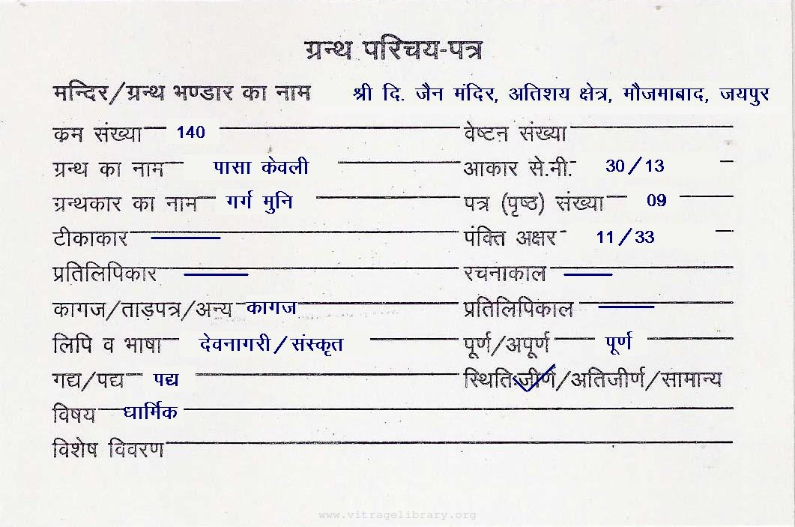 ग्रन्थ परिचय-पत्र
मन्दिर/ग्रन्थ भण्डार का नाम श्री दि. जैन मंदिर, अतिशय क्षेत्र, मौजमाबाद, जयपुर
क्रम संख्या 140 वेष्टन संख्या
ग्रन्थ का नाम पासा केवली आकार से.मी. 30/13
ग्रन्थकार का नाम गर्ग मुनि पत्र (पृष्ठ) संख्या 09
टीकाकार पंक्ति अक्षर 11/33
प्रतिलिपिकार रचनाकाल
कागज/ताड़पत्र/अन्य कागज प्रतिलिपिकाल
लिपि व भाषा देवनागरी/संस्कृत पूर्ण/अपूर्ण पूर्ण
गद्य/पद्य पद्य स्थिति जीर्ण/अतिजीर्ण/सामान्य
विषय धार्मिक
विशेष विवरण
www.vitragelibrary.org